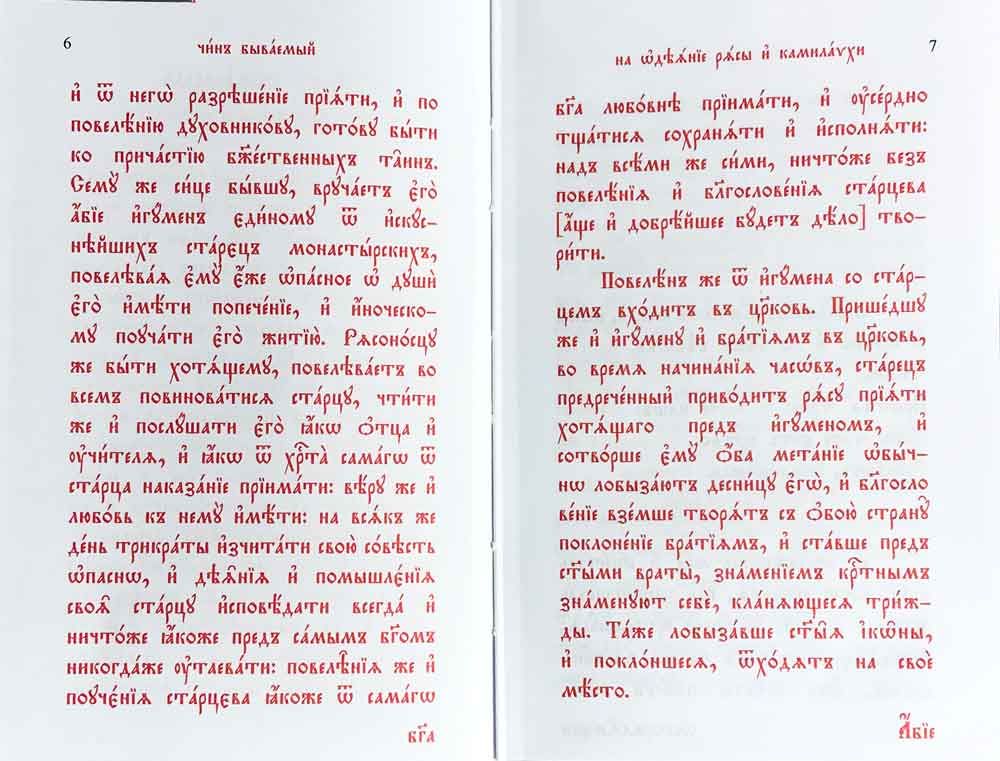 6
чи́нъ быва́емый
и҆ ѿ негѡ̀ разрѣше́нїе прїѧ́ти, и҆ по
повелѣ́нїю дꙋхо́вниковꙋ, гото́вꙋ бы́ти
ко прича́стїю бж҃е́ственныхъ та̑инъ.
Семꙋ̀ же си́це бы́вшꙋ, врꙋча́етъ є҆го̀
а҆́бїе и҆гꙋ́менъ є҆ди́номꙋ ѿ и҆скꙋс-
нѣ́йшихъ ста́рєцъ монасты́рскихъ,
повелѣва́ѧ є҆мꙋ̀ є҆́же ѡ҆па́сное ѡ҆ дꙋшѝ
є҆гѡ̀ и҆мѣ́ти попече́нїе, и҆ и҆́ноческо-
мꙋ поꙋча́ти є҆го̀ житїю̀. Рѧсоно́сцꙋ
же бы́ти хотѧ́щемꙋ, повелѣва́етъ во
всемъ повинова́тисѧ ста́рцꙋ, чти́ти
же и҆ послꙋ́шати є҆го̀ ꙗ҆́кѡ ѻ҆тца̀ и҆
ᲂу҆чи́телѧ, и҆ ꙗ҆́кѡ ѿ хрⷭ҇та̀ сама́гѡ ѿ
ста́рца наказа́нїе прїима́ти: вѣ́рꙋ же и҆
любо́вь къ немꙋ̀ и҆мѣ́ти: на всѧ́къ же
де́нь трикра́ты и҆зчита́ти свою̀ со́вѣсть
ѡ҆па́снѡ, и҆ дѣѧ̑нїѧ и҆ помышлє́нїѧ
своѧ̑ ста́рцꙋ и҆сповѣ́дати всегда̀ и҆
ничто́же ꙗ҆́коже предъ са́мымъ бг҃омъ
никогда́же ᲂу҆таева́ти: повелѣ̑нїѧ же и҆
поꙋчє́нїѧ ста́рцєва ꙗ҆́коже ѿ сама́гѡ
бг҃а
на ѡ҆дѣѧ́нїе рѧ́сы и҆ камила́ѵхи
7
бг҃а любо́внѣ прїима́ти, и҆ ᲂу҆се́рднѡ
тща́тисѧ сохранѧ́ти и҆ и҆сполнѧ́ти:
надъ всѣ́ми же си́ми, ничто́же безъ
повелѣ́нїѧ и҆ бл҃гослове́нїѧ ста́рцева
[а҆́ще и҆ добрѣ́йшее бꙋ́детъ дѣ́ло] тво-
ри́ти.
Повелѣ́нъ же ѿ и҆гꙋ́мена со ста́р-
цемъ вхо́дитъ въ цр҃ковь. Прише́дшꙋ
же и҆ и҆гꙋ́менꙋ и҆ бра́тїѧмъ въ цр҃ковь,
во времѧ̀ начина́нїѧ часѡ́въ, ста́рецъ
предрече́нный приво́дитъ рѧ́сꙋ прїѧ́ти
хотѧ́щаго предъ и҆гꙋ́меномъ, и҆
сотво́рше є҆мꙋ̀ ѻ҆́ба мета́нїе ѡ҆бы́ч-
нѡ лобыза́ютъ десни́цꙋ є҆гѡ̀, и҆ бл҃госло
ве́нїе взе́мше творѧ́тъ съ ѻ҆бою̀ странꙋ̀
поклоне́нїе бра́тїѧмъ, и҆ ста́вше предъ
ст҃ы́ми враты̀, зна́менїемъ крⷭ҇тнымъ
зна́менꙋютъ себѐ, кла́нѧющесѧ три́ж-
ды. Та́же лобыза́вше ст҃ы̑ѧ і҆кѡ́ны,
и҆ покло́ншесѧ, ѿхо́дѧтъ на своѐ
мѣ́сто.
А҆́бїе